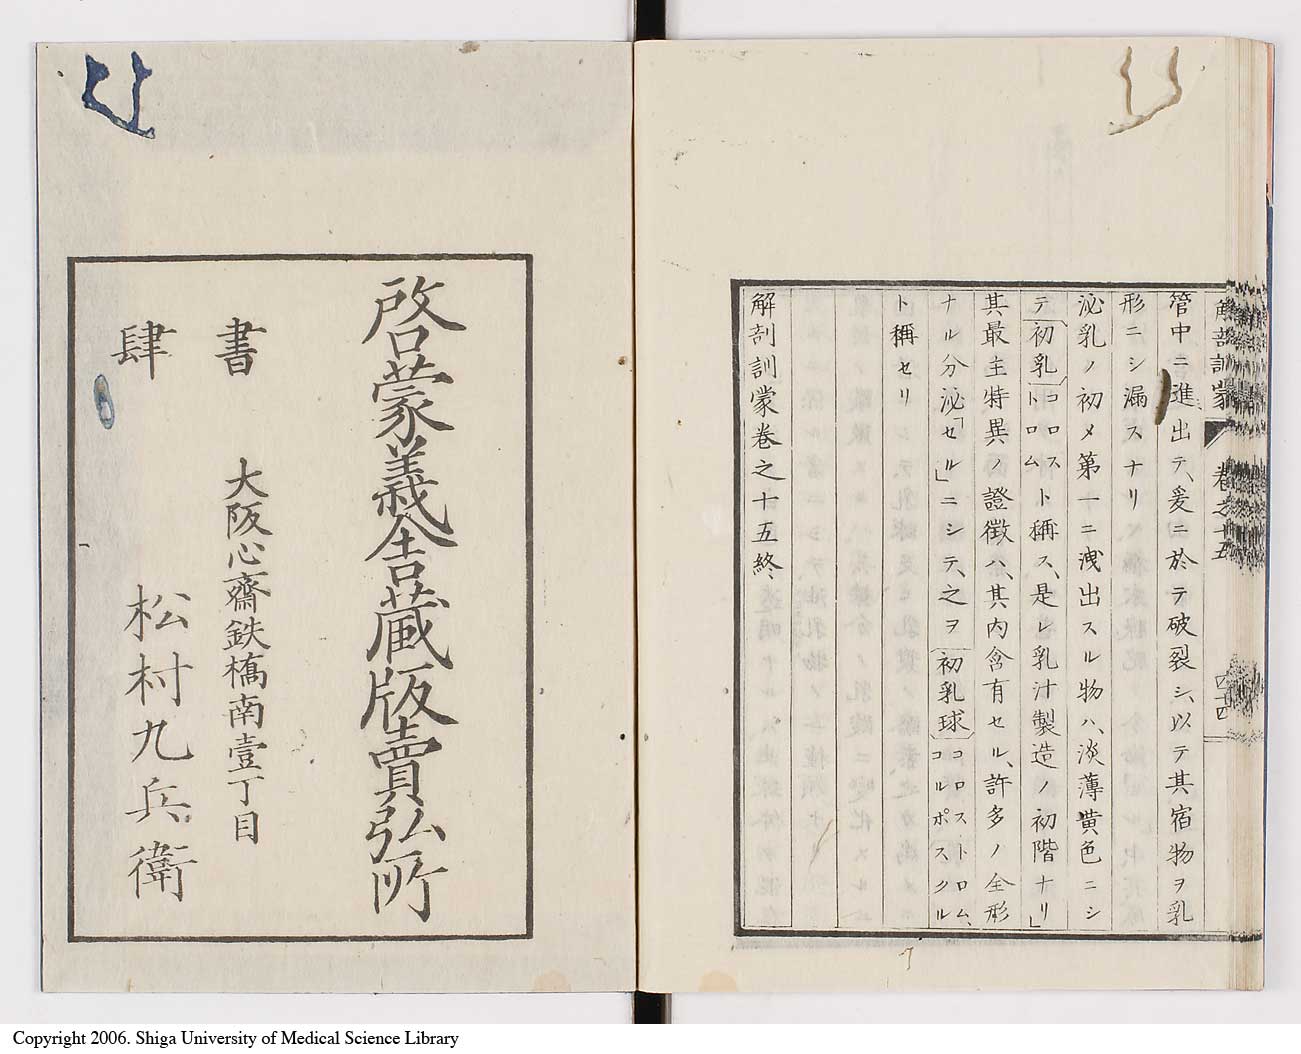 解剖訓蒙 卷之十五 四十四
管中ニ進出テ、爰ニ於テ破裂シ、以テ其宿物ヲ乳
形ニシ漏スナリ
泌乳ノ初メ第一ニ洩出スル物ハ、淡薄黄色ニシ
テ初乳コロストロムト稱ス、是レ乳汁製造ノ初階ナリ」
其最主特異ノ證徴ハ、其内含有セル、許多ノ全形
ナル分泌「セル」ニシテ、之ヲ初乳球コロストロム、コルポスクル
ト稱セリ
解剖訓蒙卷之十五終、
啓蒙義舎蔵版賣弘所
書肆
大阪心齋鉄橋南壹丁目
松村九兵衛
Copyright 2006. Shiga University of Medical Science Library